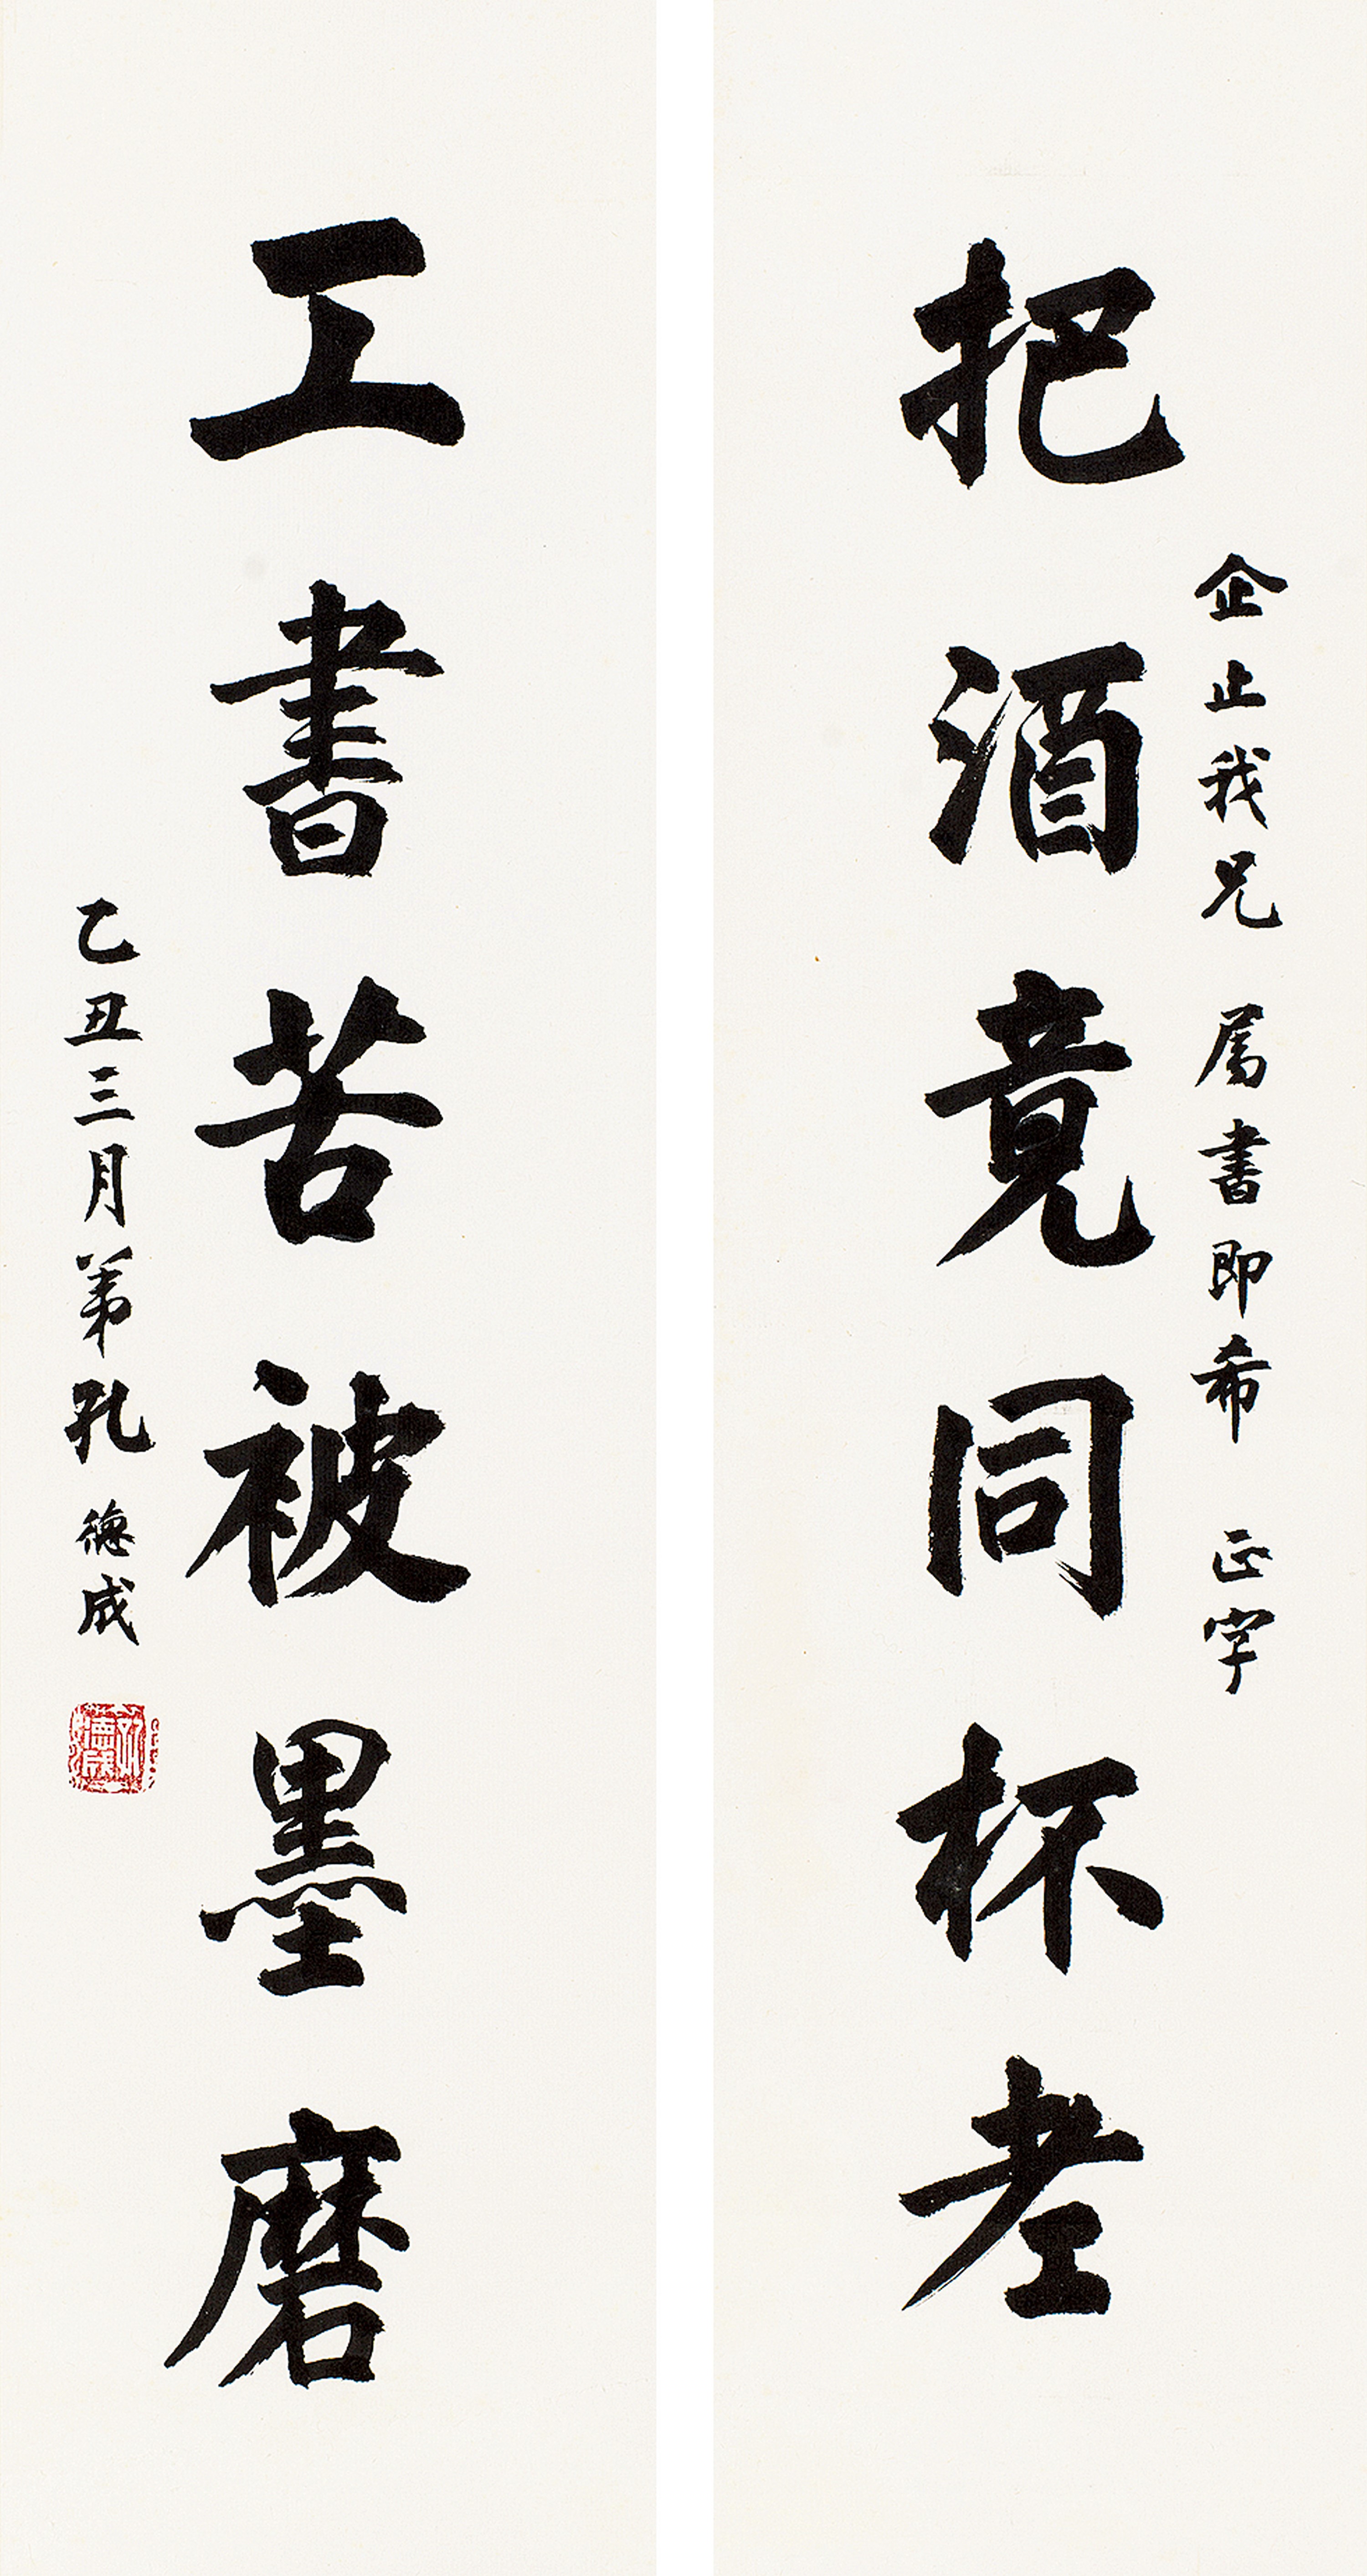 企止我兄 属書即希 正字
把酒竟同杯孝
工書苦被墨磨
乙丑三月弟孔德成
孔德成